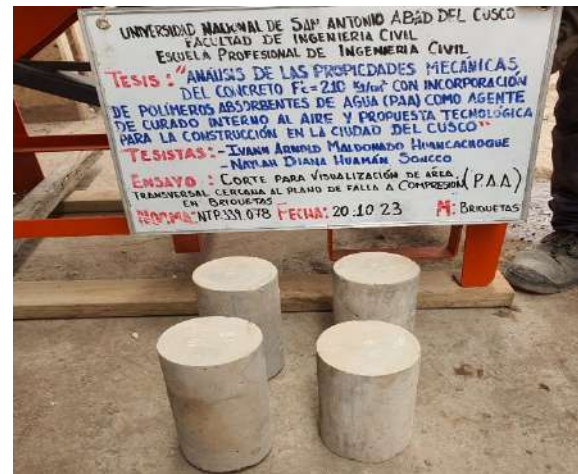 UNIVERSIDAD NACIONAL DE SAN ANTONIO ABAD DEL CUSCO
FACULTAD DE INGENIERIA CIVIL
ESCUELA PROFESIONAL DE INGENIERIA CIVIL
TESIS: "ANÁLISIS DE LAS PROPIEDADES MECÁNICAS
DEL CONCRETO F'c=210 Kg/cm² CON INCORPORACIÓN
DE POLÍMEROS ABSORBENTES DE AGUA (PAA) COMO AGENTE
DE CURADO INTERNO AL AIRE Y PROPUESTA TECNOLÓGICA
PARA LA CONSTRUCCIÓN EN LA CIUDAD DEL CUSCO"
TESISTAS: - IVANN ARNOLD MALDONADO HUANCACHOQUE
- NAYLAH DIANA HUAMÁN SONCCO
ENSAYO: CORTE PARA VISUALIZACIÓN DE AREA
TRANSVERSAL CERCANA AL PLANO DE FALLA A COMPRESIÓN (P.A.A)
EN BRIQUETAS
NORMA: NTP.339.078 FECHA: 20.10.23 M: BRIQUETAS